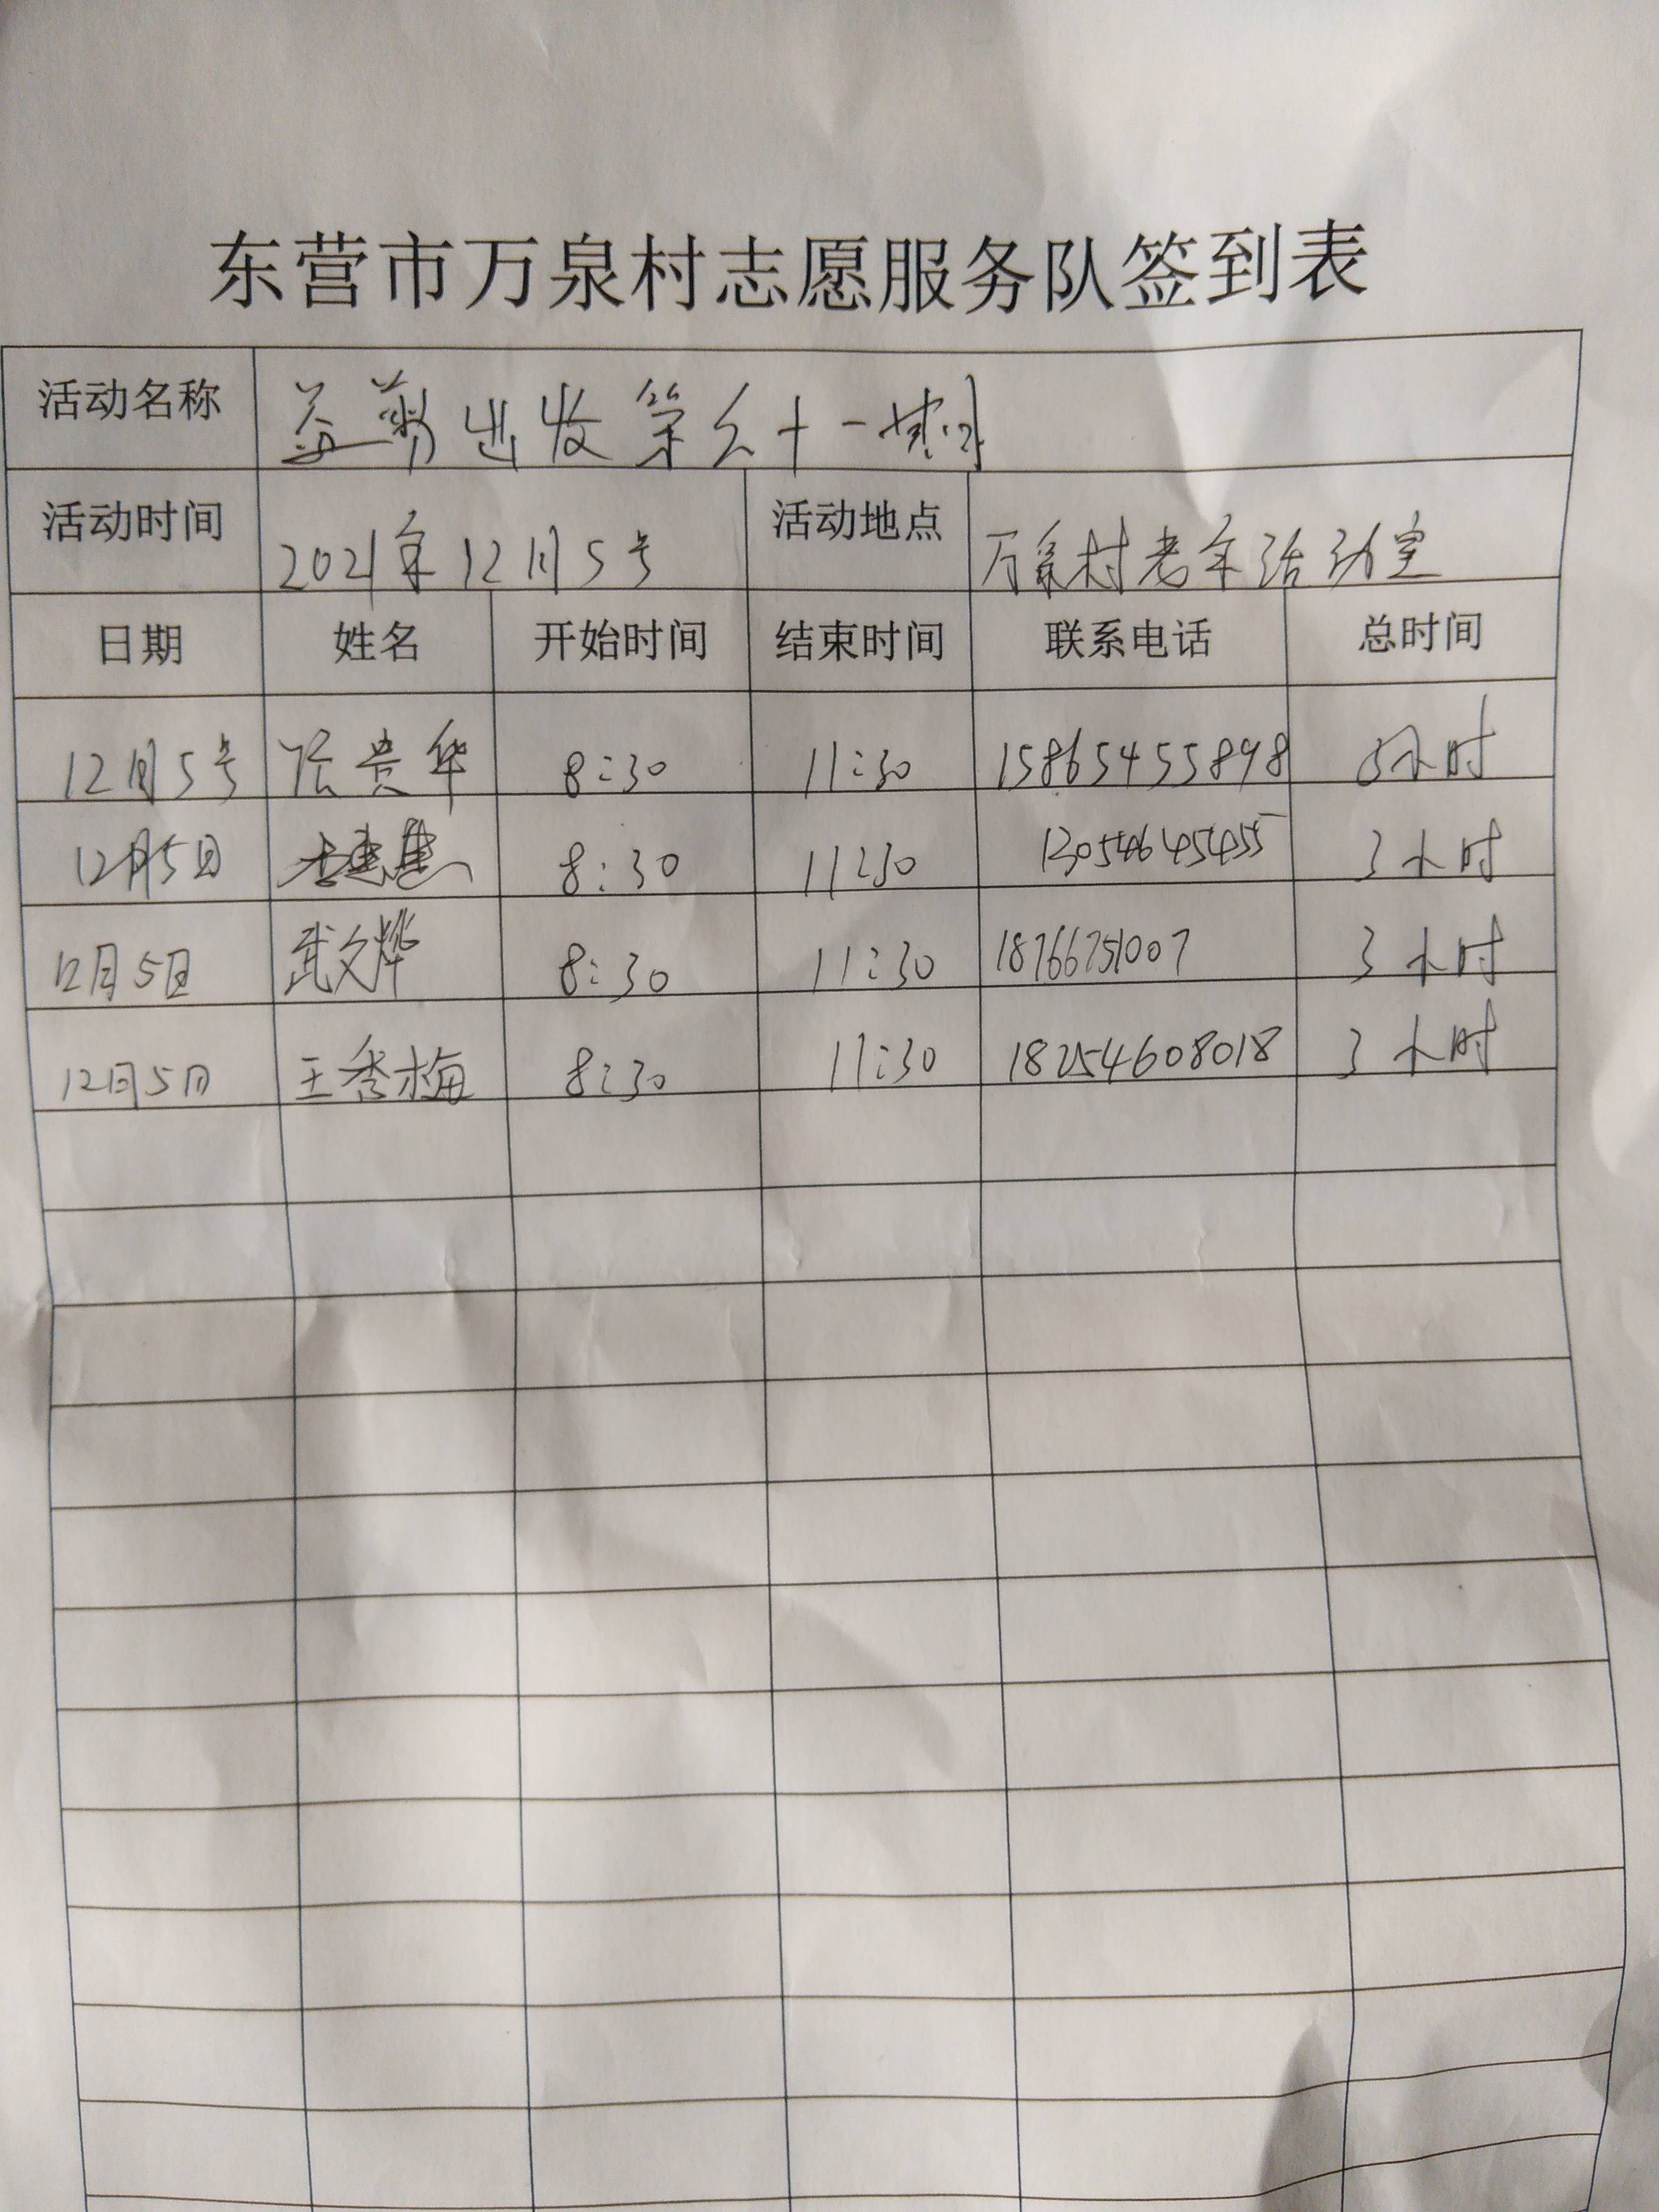 东营市万泉村志愿服务队签到表
活动名称 益剪 出发 第 十一
活动时间 2021年12月5号 活动地点 万泉村老年活动室
日期 姓名 开始时间 结束时间 联系电话 总时间
12月5号 张贵华 8:30 11:30 15865455898 小时
12月5日 8:30 11:30 3小时
12月5日 武文烨 8:30 11:30 18766751007 3小时
12月5日 王秀梅 8:30 11:30 18254608018 3小时